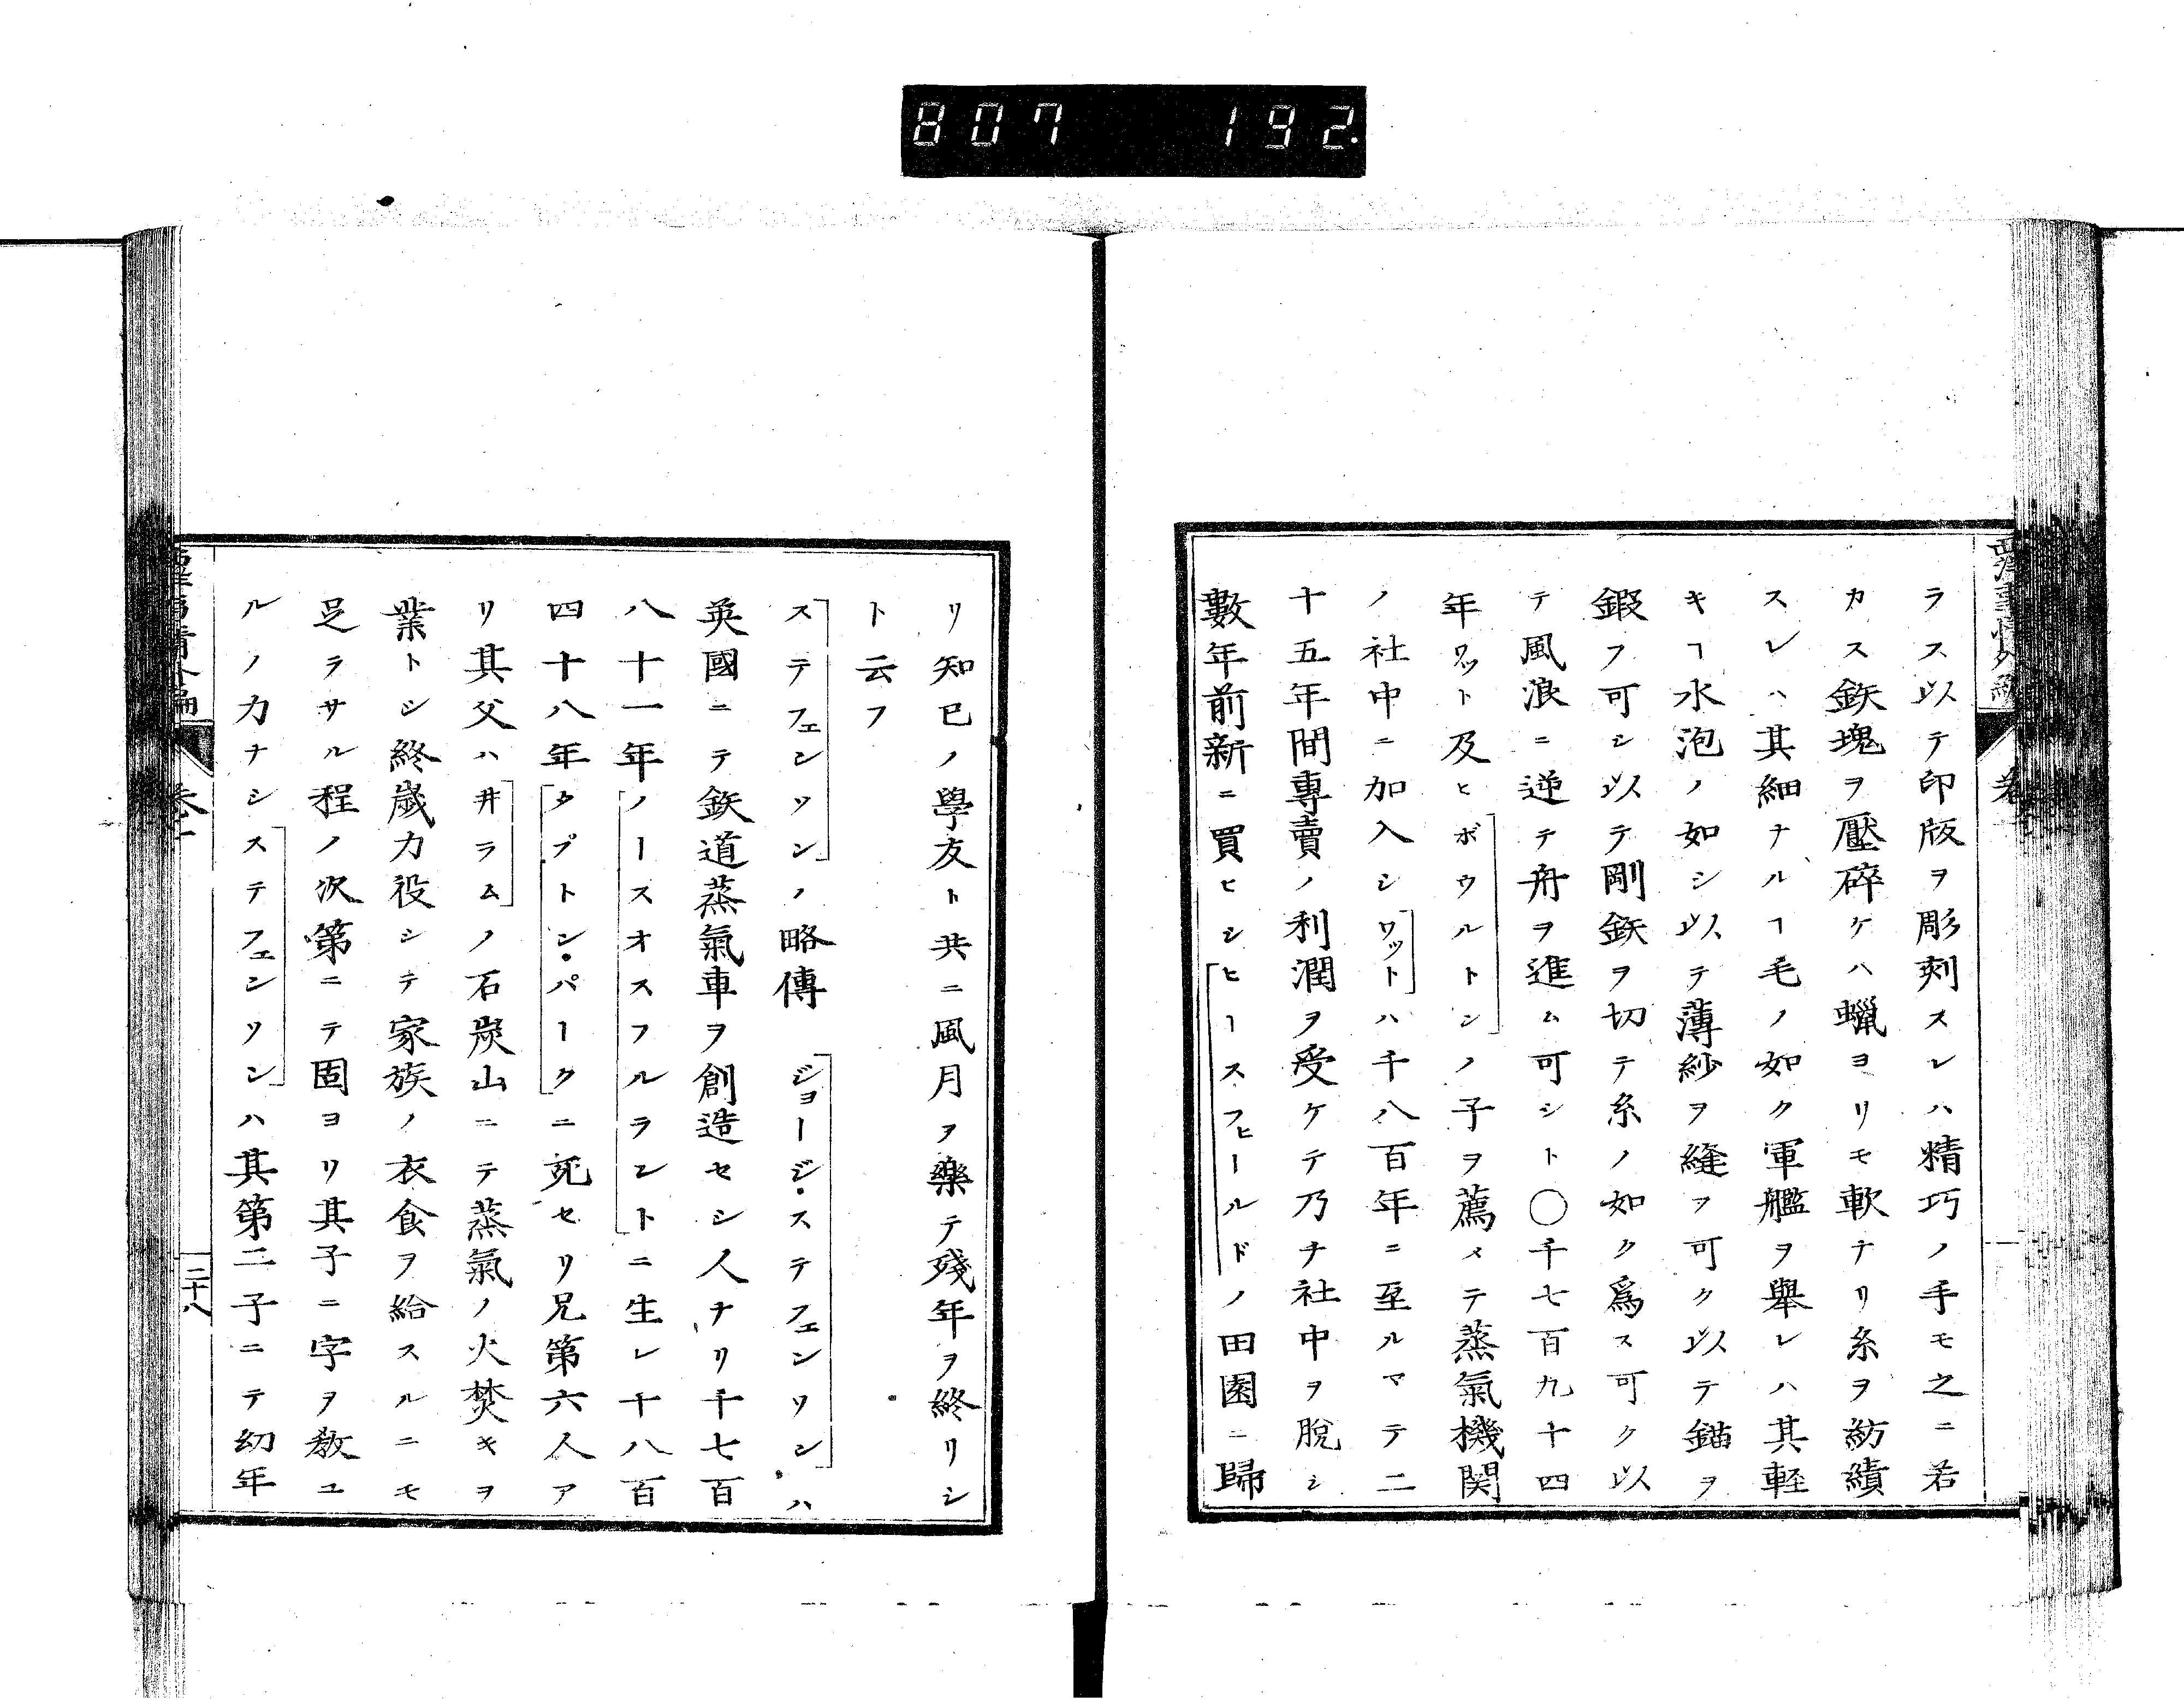 807 192.
ラス以テ印版ヲ彫刻スレハ精巧ノ手モ之ニ若
カス鉄塊ヲ壓碎ケハ蠟ヨリモ軟ナリ糸ヲ紡績
スレハ其細ナルヿ毛ノ如ク軍艦ヲ舉レハ其軽
キヿ水泡ノ如シ以テ薄紗ヲ縫フ可ク以テ錨ヲ
鍜フ可シ以テ剛鉄ヲ切テ糸ノ如ク爲ス可ク以
テ風浪ニ逆テ舟ヲ進ム可シト〇千七百九十四
年ワット及ヒボウルトンノ子ヲ薦メテ蒸氣機関
ノ社中ニ加入シワットハ千八百年ニ至ルマテ二
十五年間專賣ノ利潤ヲ受ケテ乃チ社中ヲ脱シ
數年前新ニ買ヒシヒースフヒールドノ田園ニ歸
リ知已ノ學友ト共ニ風月ヲ樂テ殘年ヲ終リシ
ト云フ
ステフェンソンノ略傳 ジョージ・ステフェンソンハ
英國ニテ鉄道蒸氣車ヲ創造セシ人ナリ千七百
八十一年ノースオスフルラントニ生レ千八百
四十八年タプトン・パークニ死セリ兄第六人ア
リ其父ハ井ラムノ石炭山ニテ蒸氣ノ火焚キヲ
業トシ終歳力役シテ家族ノ衣食ヲ給スルニモ
足ラサル程ノ次第ニテ固ヨリ其子ニ字ヲ教ユ
ルノ力ナシステフェンソンハ其第二子ニテ幼年
西洋事情外編
二十八